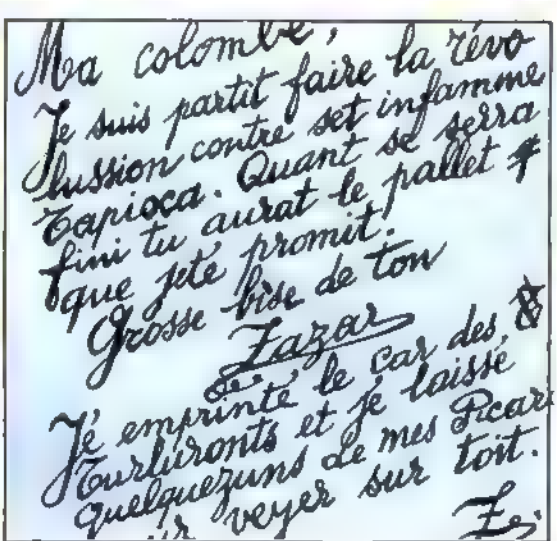 Ma colombe,
Je suis partit faire la révo
lussion contre set infamme
Tapioca. Quant se serra
fini tu aurat le pallet
que jeté promit.
Grosse bise de ton
Zazar
Jé emprinté le car des
Turluronts et je laissé
quelquezuns de mes Picar
veyer sur toit.